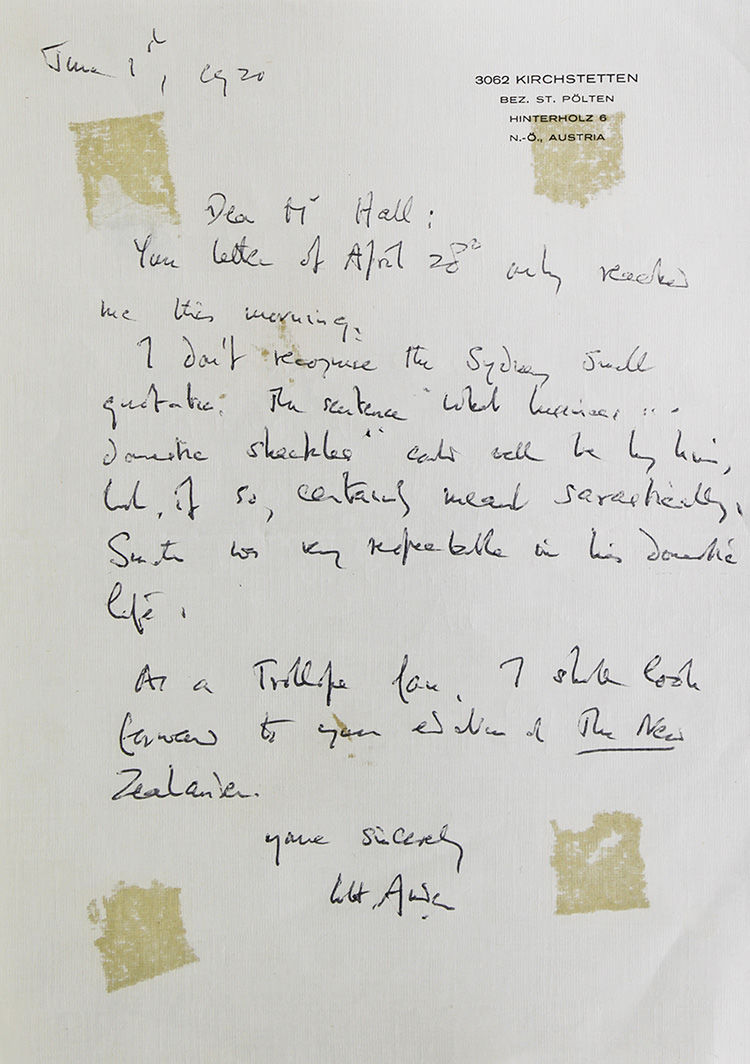 June 1st, 1970
3062 KIRCHSTETTEN
BEZ. ST. PÖLTEN
HINTERHOLZ 6
N.-Ö., AUSTRIA
Dear Mr Hall:
Your letter of April 28th only reached
me this morning.
I don't recognise the Sydney Smith
quotation. The sentence "What business ...
domestic shackles" could well be by him,
but, if so, certainly meant sarcastically.
Smith was very respectable in his domestic
life.
As a Trollope fan, I shall look
forward to your edition of The New
Zealander.
yours sincerely
W.H. Auden